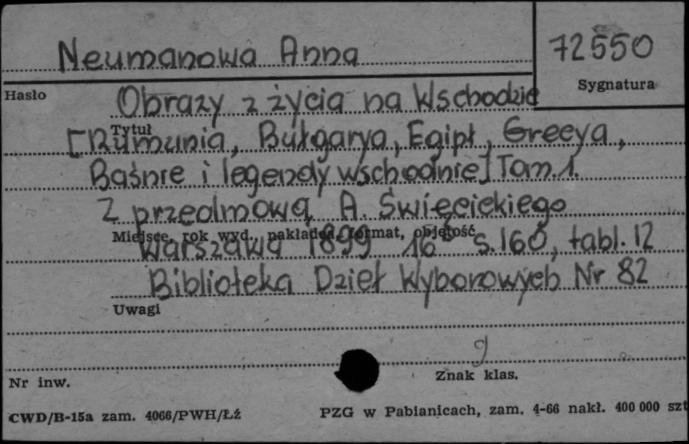 Neumanowa Anna
72550
Sygnatura
Hasło
Obrazy z życia na Wschodzie
Tytuł
[Rumunia, Bułgarya, Egipt, Grecya,
Baśnie i legendy wschodnie] Tom 1.
Z przedmową A. Święcickiego
Miejsce, rok wyd., nakładca, format, objętość
Warszawa 1899 16° s. 160, tabl. 12
Biblioteka Dzieł Wyborowych Nr 82
Uwagi
9
Nr inw.
Znak klas.
CWD/B-15a zam. 4066/PWH/Łź
PZG w Pabianicach, zam. 4-66 nakł. 400 000 szt